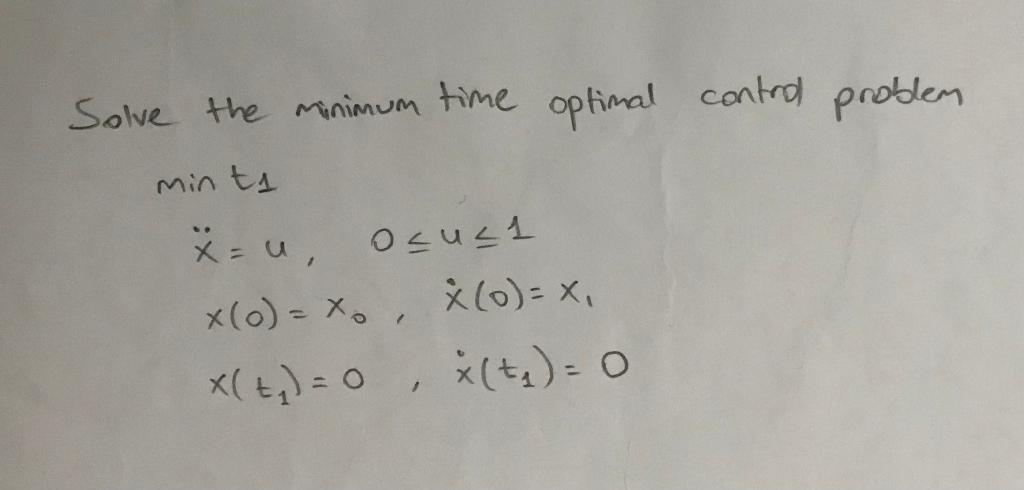 Solve the minimum time optimal control problem
min t₁
ẍ = u, 0 ≤ u ≤ 1
x(0) = x₀, ẋ(0) = x₁
x(t₁) = 0, ẋ(t₁) = 0